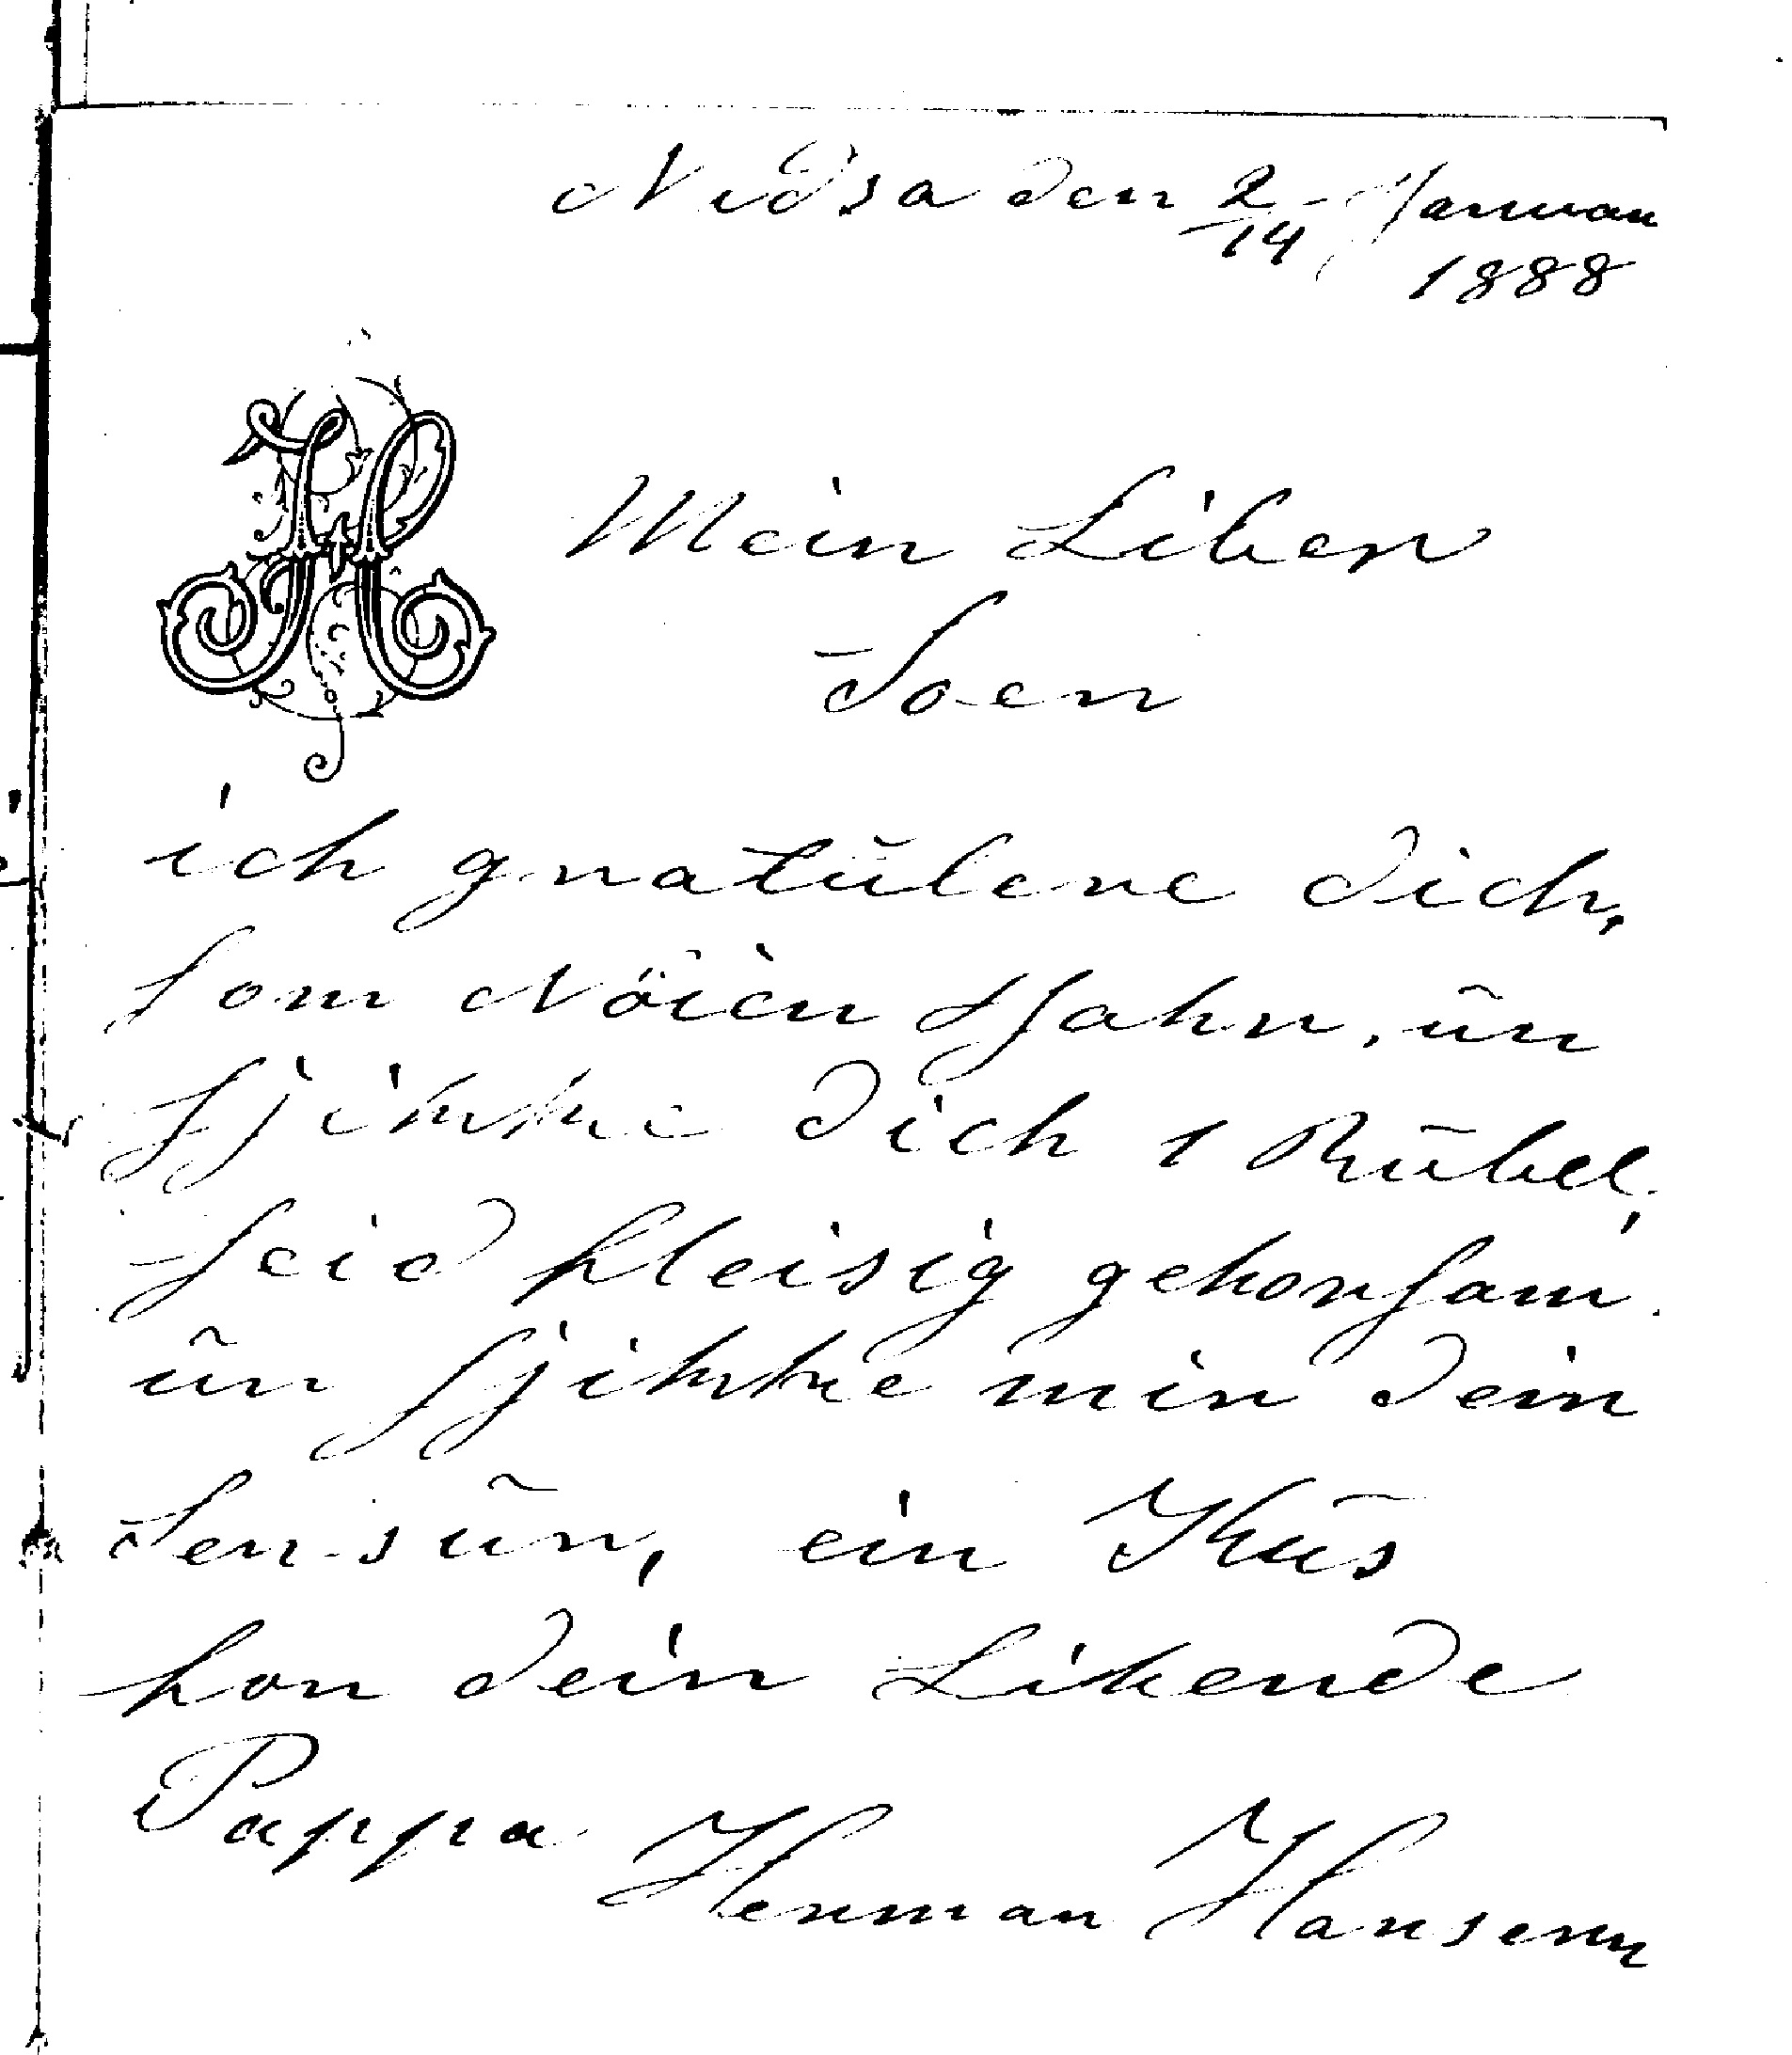 Nidsa den 2/14 Januar
1888
H
Mein Liben
Soen
ich gratülere dich,
som Nöien Jahr, ün
sjikke dich 1 Rübel,
seid fleisig gehorsam
ün sjikke mir dein
Sensür, ein Küs
fon dein Libende
Pappa Herman Hansenn